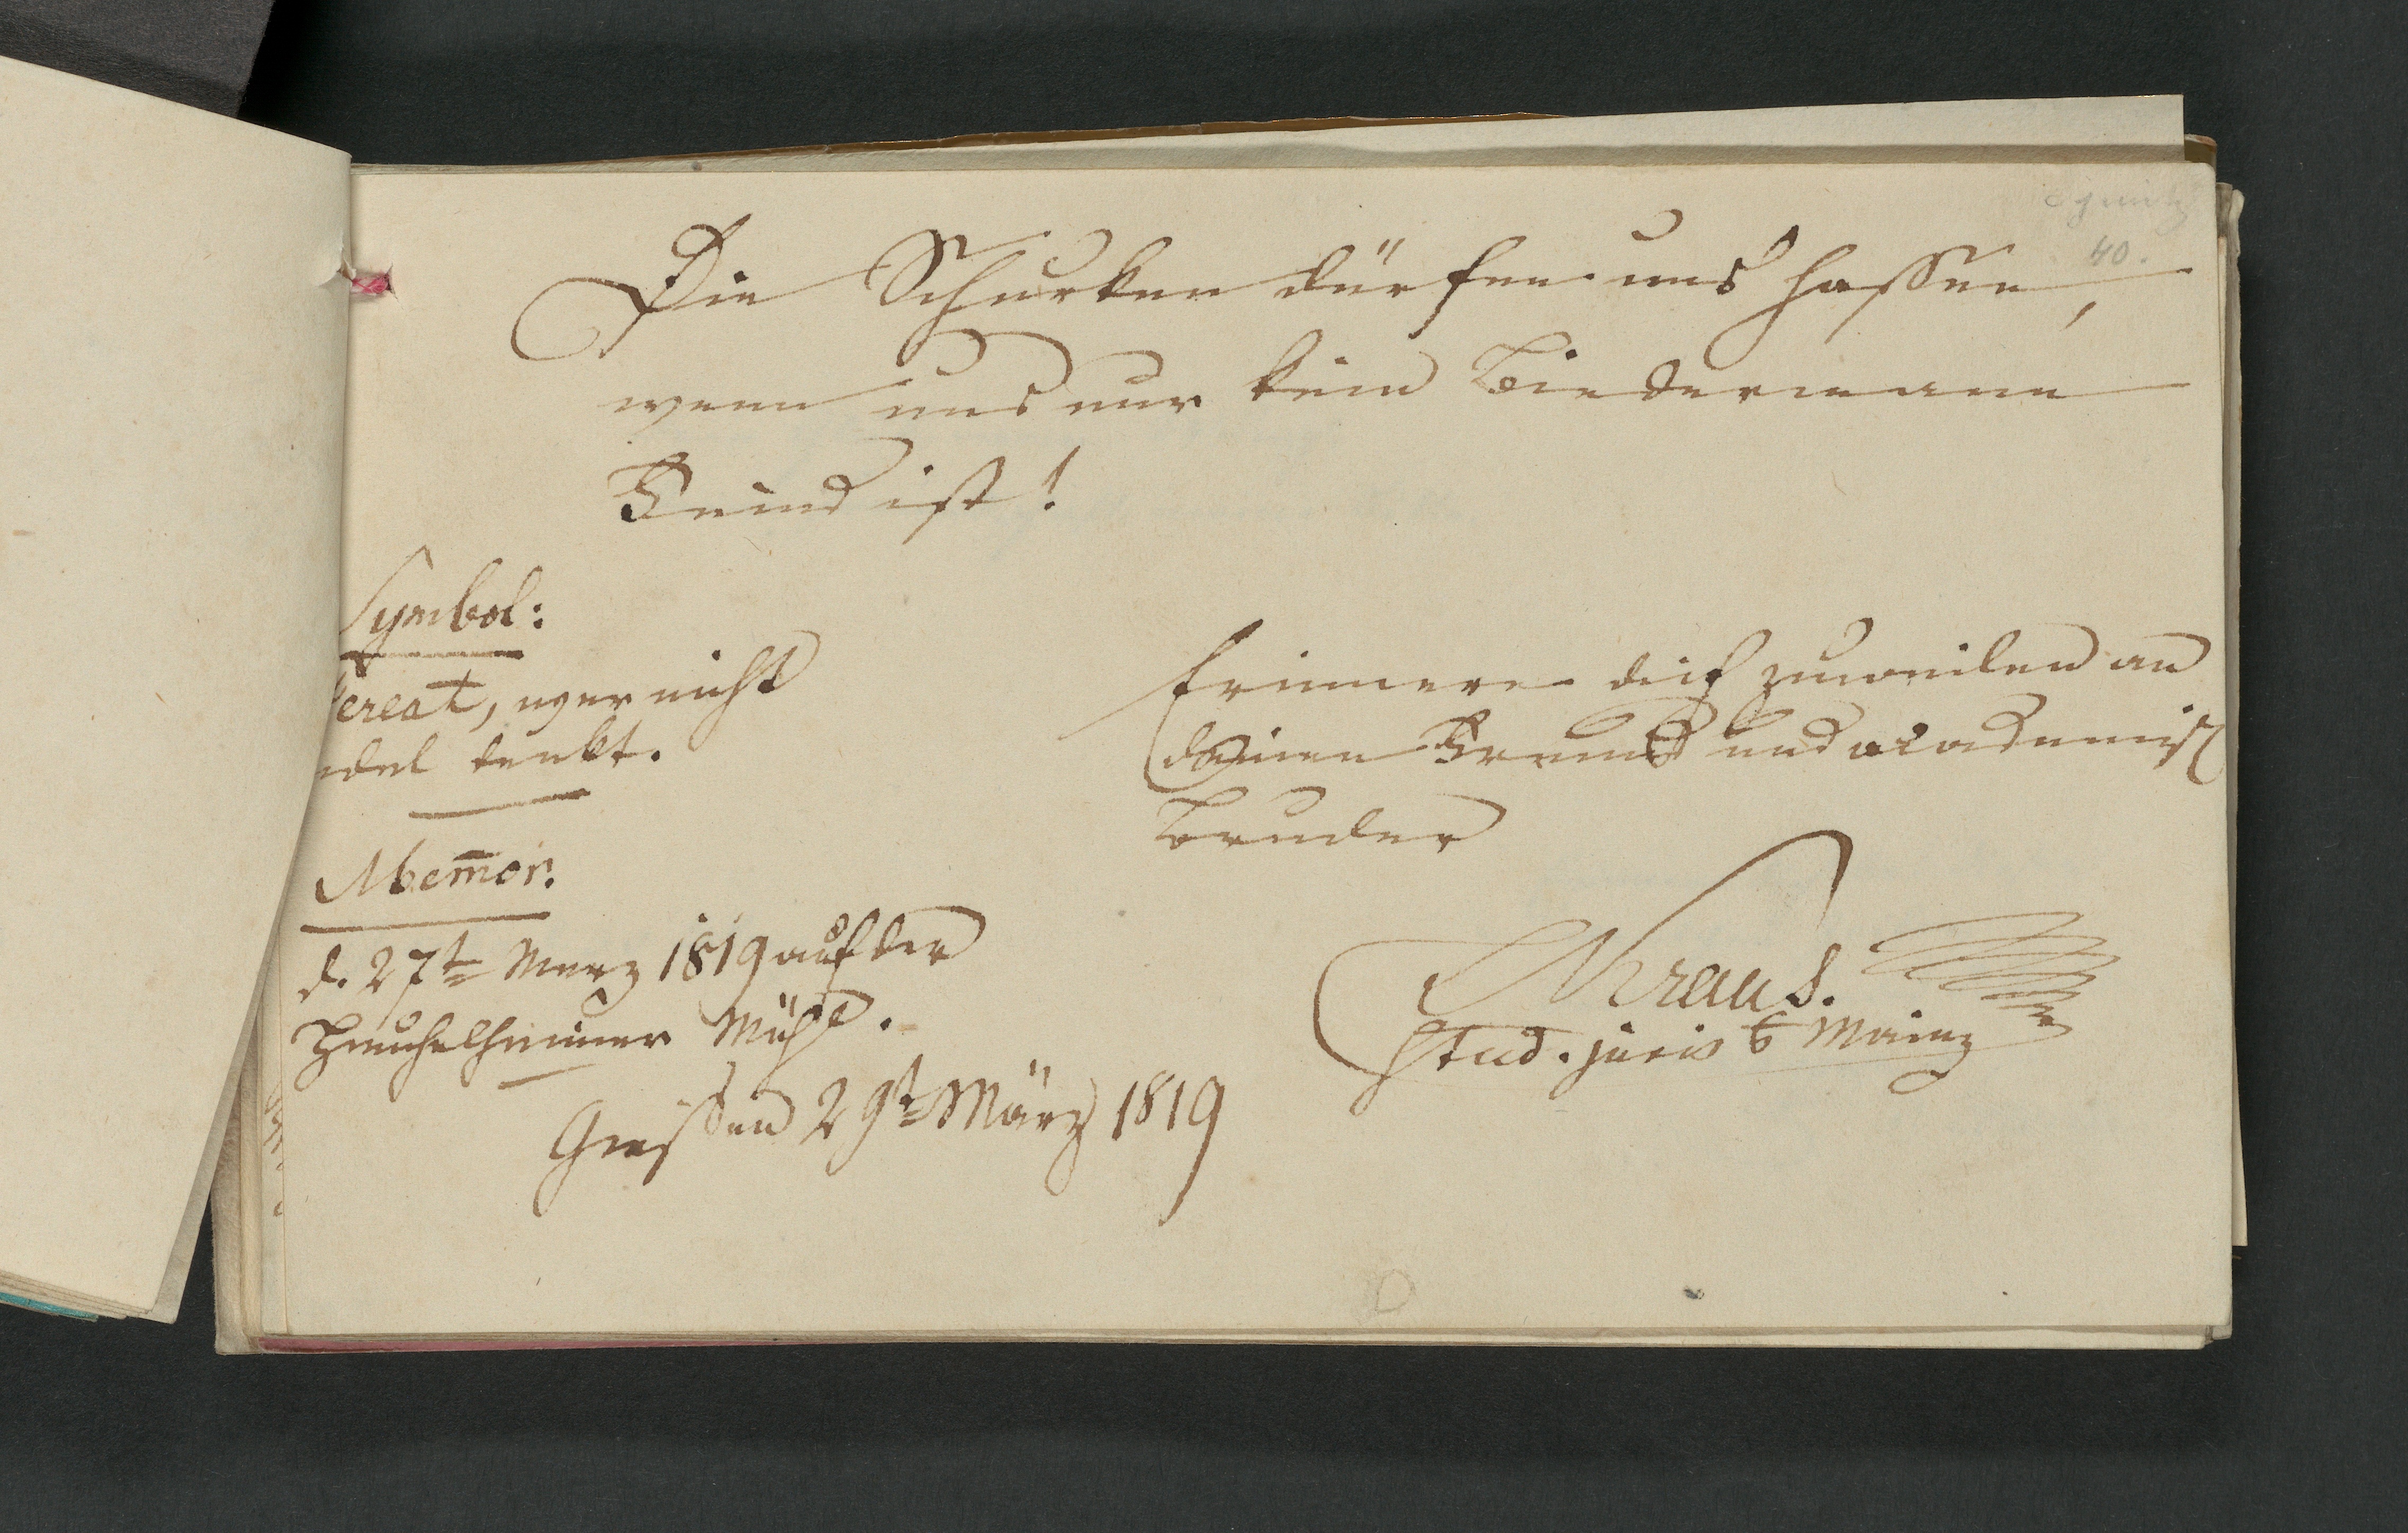 40.
Die Schurken dürfen uns hassen,
wenn uns nur kein Biedermann
Feind ist!
Symbol:
Pereat, wer nicht
edel denkt.
Memor.
d. 27t Merz 1819 auf der
Heuchelheimer Mühl.
Giessen 29t März 1819
Erinnere dich zuweilen an
deinen Freund und academisch
Bruder
Kraus.
Stud. juris Mainz